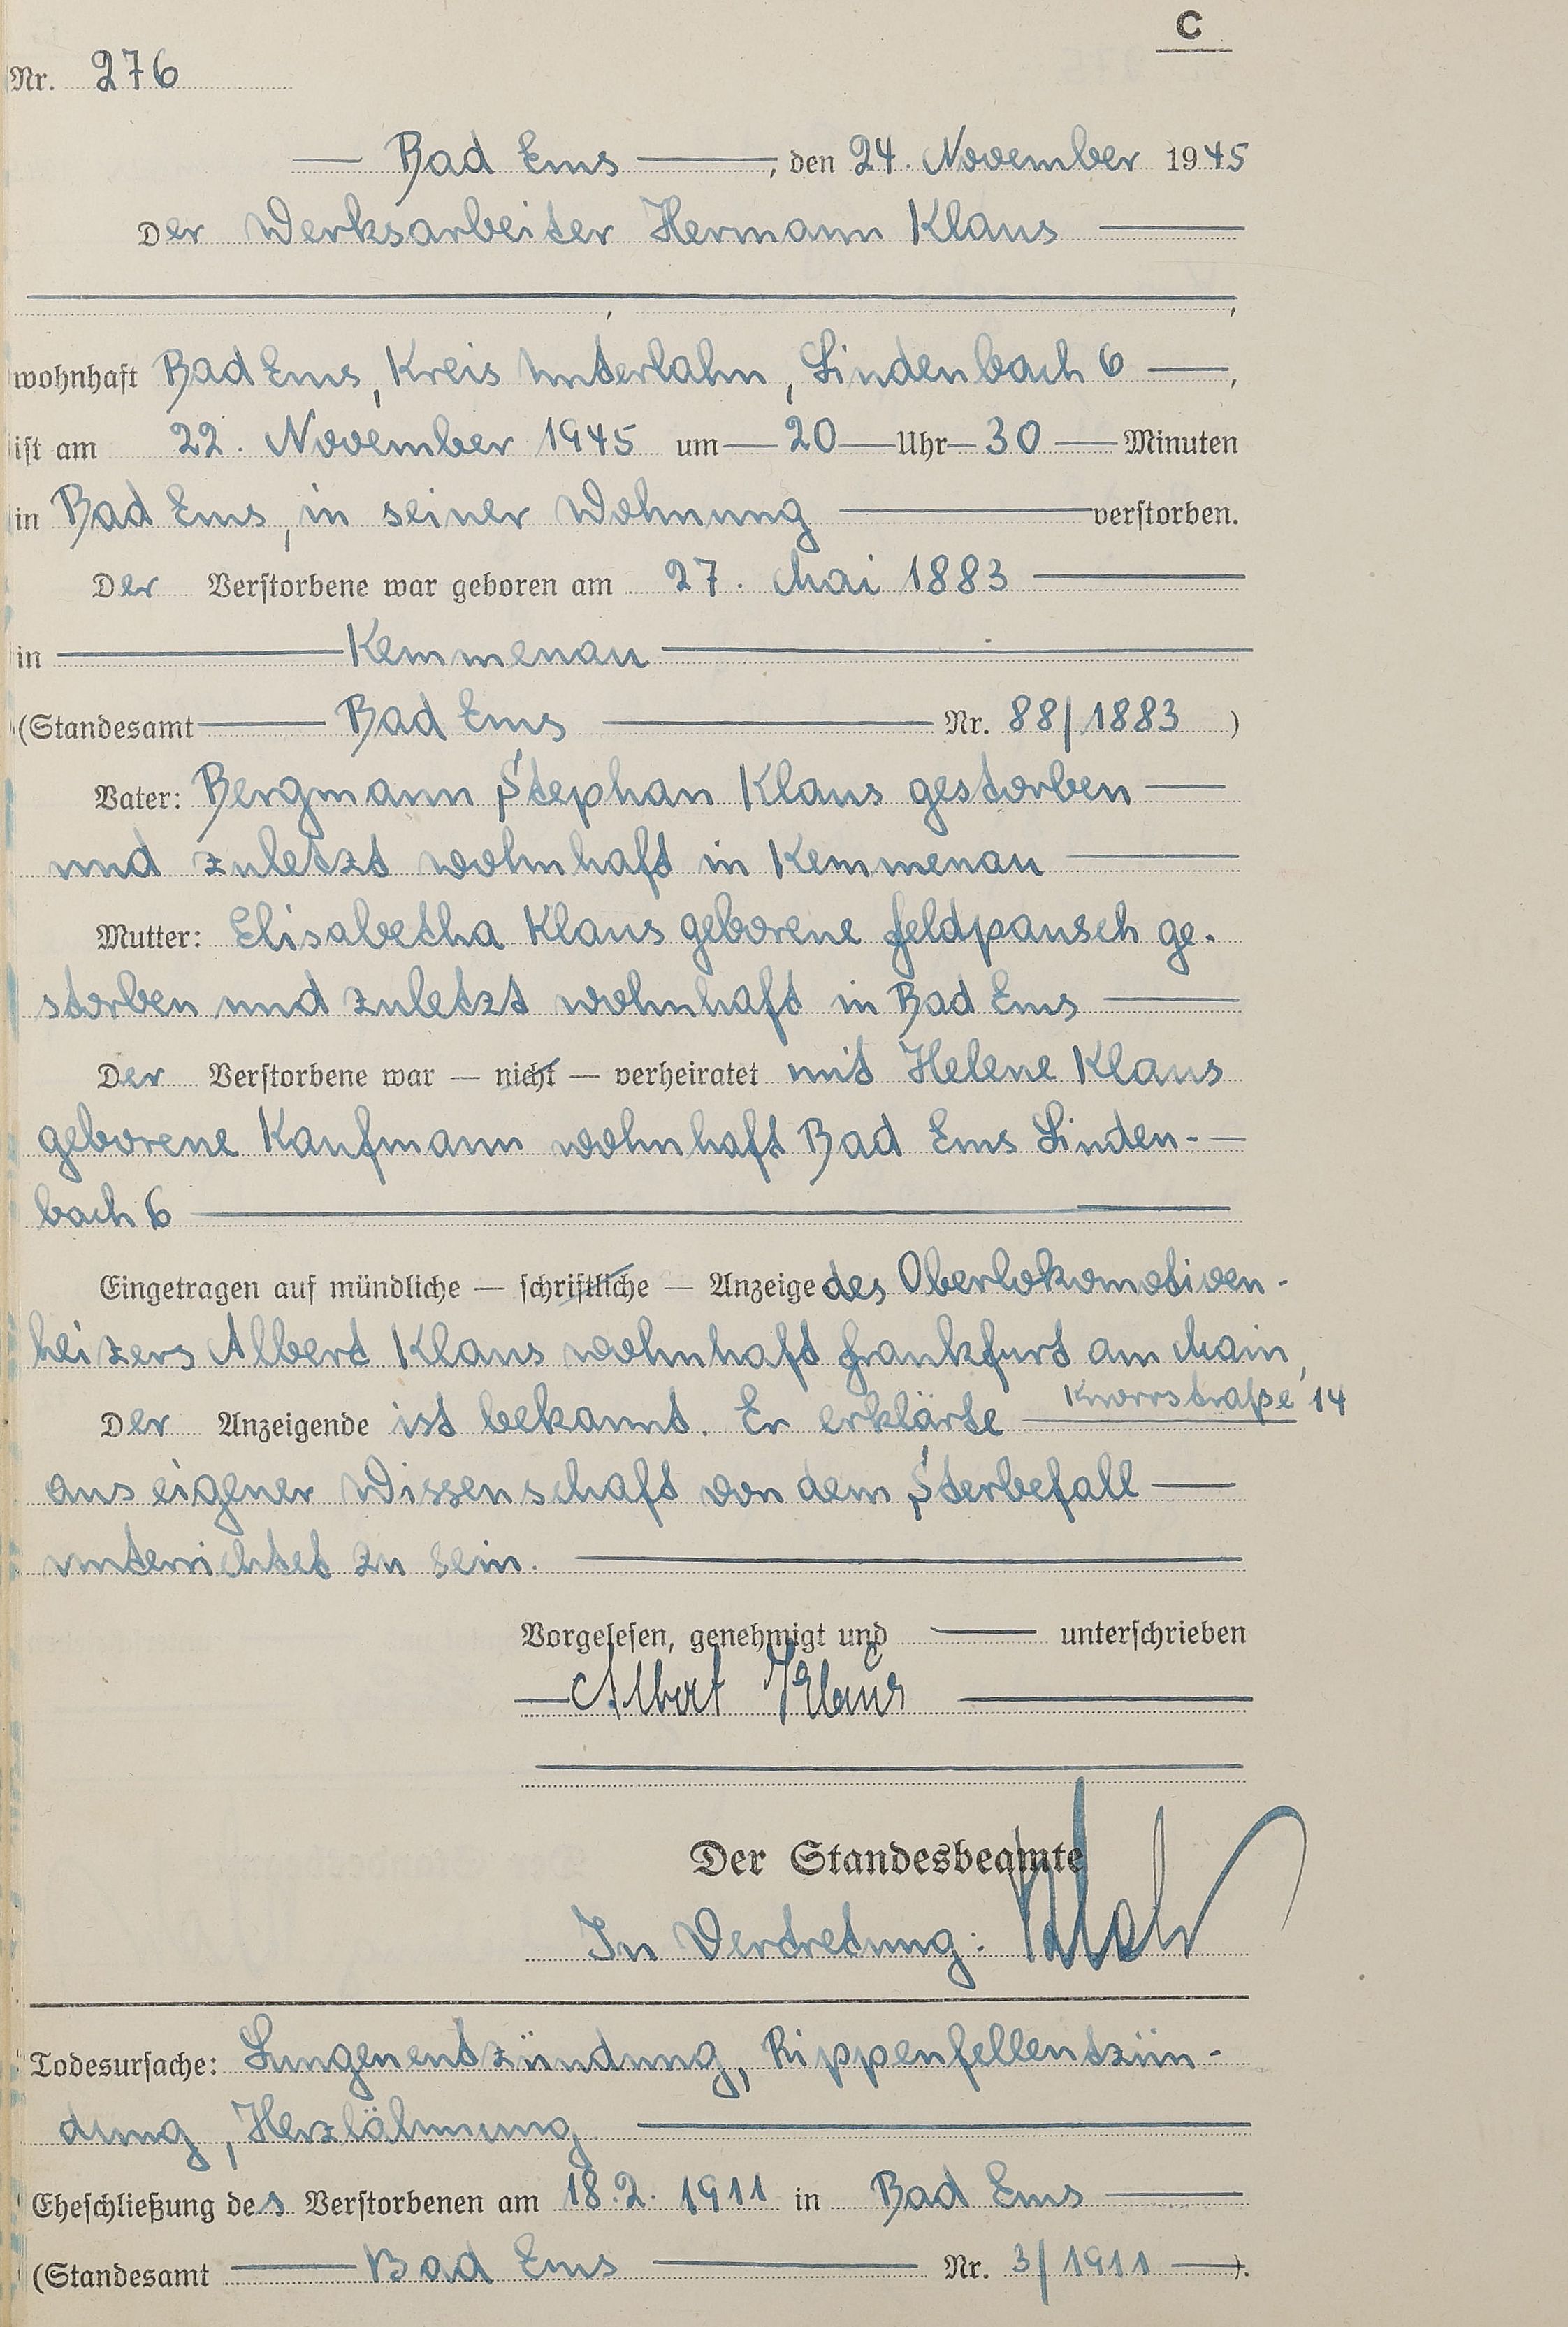 C
Nr. 276
Bad Ems, den 24. November 1945
Der Werksarbeiter Hermann Klaus
, ,
wohnhaft Bad Ems, Kreis Unterlahn, Lindenbach 6,
ist am 22. November 1945 um 20 Uhr 30 Minuten
in Bad Ems, in seiner Wohnung verstorben.
Der Verstorbene war geboren am 27. Mai 1883
in Kemmenau
(Standesamt Bad Ems Nr. 88/1883)
Vater: Bergmann Stephan Klaus gestorben
und zuletzt wohnhaft in Kemmenau
Mutter: Elisabetha Klaus geborene Feldpausch ge-
storben und zuletzt wohnhaft in Bad Ems
Der Verstorbene war — nicht — verheiratet mit Helene Klaus
geborene Kaufmann wohnhaft Bad Ems Linden-
bach 6
Eingetragen auf mündliche — schriftliche — Anzeige des Oberlokomotiven-
heizers Albert Klaus wohnhaft Frankfurt am Main,
Knorrstraße 14
Der Anzeigende ist bekannt. Er erklärte
aus eigener Wissenschaft von dem Sterbefall
unterrichtet zu sein.
Vorgelesen, genehmigt und unterschrieben
Albert Klaus
Der Standesbeamte
In Vertretung:
Todesursache: Lungenentzündung, Rippenfellentzün-
dung, Herzlähmung
Eheschließung des Verstorbenen am 18.2. 1911 in Bad Ems
(Standesamt Bad Ems Nr. 3/1911).